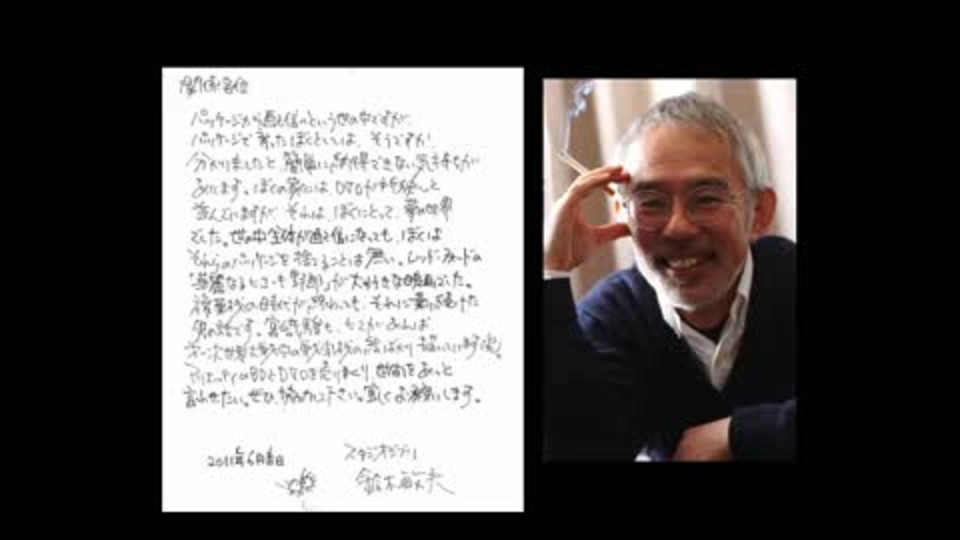 関係各位
パッケージから通信へという世の中ですが、
パッケージで育ったぼくとしては、そうですか、
分かりましたと、簡単に納得できない気持ちが
あります。ぼくの家には、DVDが
並んでいますが、それは、ぼくにとって、夢の世界
でした。世の中全体が通信になっても、ぼくは
それらのパッケージを捨てることは無い。レッドフォードの
「華麗なるヒコーキ野郎」が大好きな映画でした。
複葉機の時代が終わっても、それに乗り続けた
男の話です。宮崎駿も、ヒマがあれば
第一次世界大戦中の戦闘機の絵ばかり描いています(笑)。
アリエッティのBDとDVDを売りまくり、世間をあっと
言わせたい。ぜひ、力を下さい。宜しくお願いします。
2011年6月吉日
スタジオジブリ
鈴木敏夫